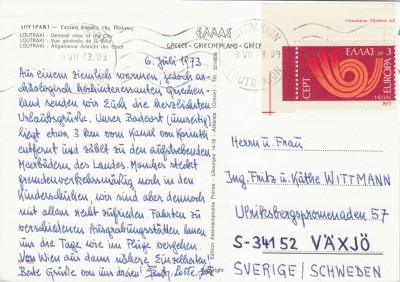 ΛΟΥΤΡΑΚΙ - Γενική άποψις της Πόλεως
LOUTRAKI - General view of the City
LOUTRAKI - Vue générale de la Ville
LOUTRAKI - Allgemeine Ansicht der Stadt
ΕΛΛΑΣ
GREECE - GRIECHENLAND - GRÈCE
9 VII 73.09
9 VII 73.09
ΕΛΛΑΣ ΔΡ 3
CEPT
EUROPA
HELLAS
1973
6. Juli 1973.
Aus einem ziemlich warmen, jedoch ar-
chäologisch hochinteressanten Griechen-
land senden wir Euch die herzlichsten
Urlaubsgrüße. Unser Badeort (umseitig)
liegt etwa 3 km vom Kanal von Korinth
entfernt und zählt zu den aufstrebenden
Meerbädern des Landes. Manches steckt
fremdenverkehrsmäßig noch in den
Kinderschuhen, wir sind aber dennoch
mit allem recht zufrieden. Fahrten zu
verschiedenen Ausgrabungsstätten lassen
uns die Tage wie im Fluge vergehen.
Von Wien aus dann nähere Einzelheiten!
Beste Grüße von uns dreien!
Herrn u. Frau
Ing. Fritz u. Käthe WITTMANN
Ulriksbergspromenaden 57
S-34152 VÄXJÖ
SVERIGE/SCHWEDEN
Copyright